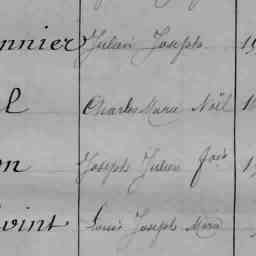 nnier Julien Joseph 19
l Charles Marie Noël 1
on Joseph Julien fois 1
vint Louis Joseph Marie